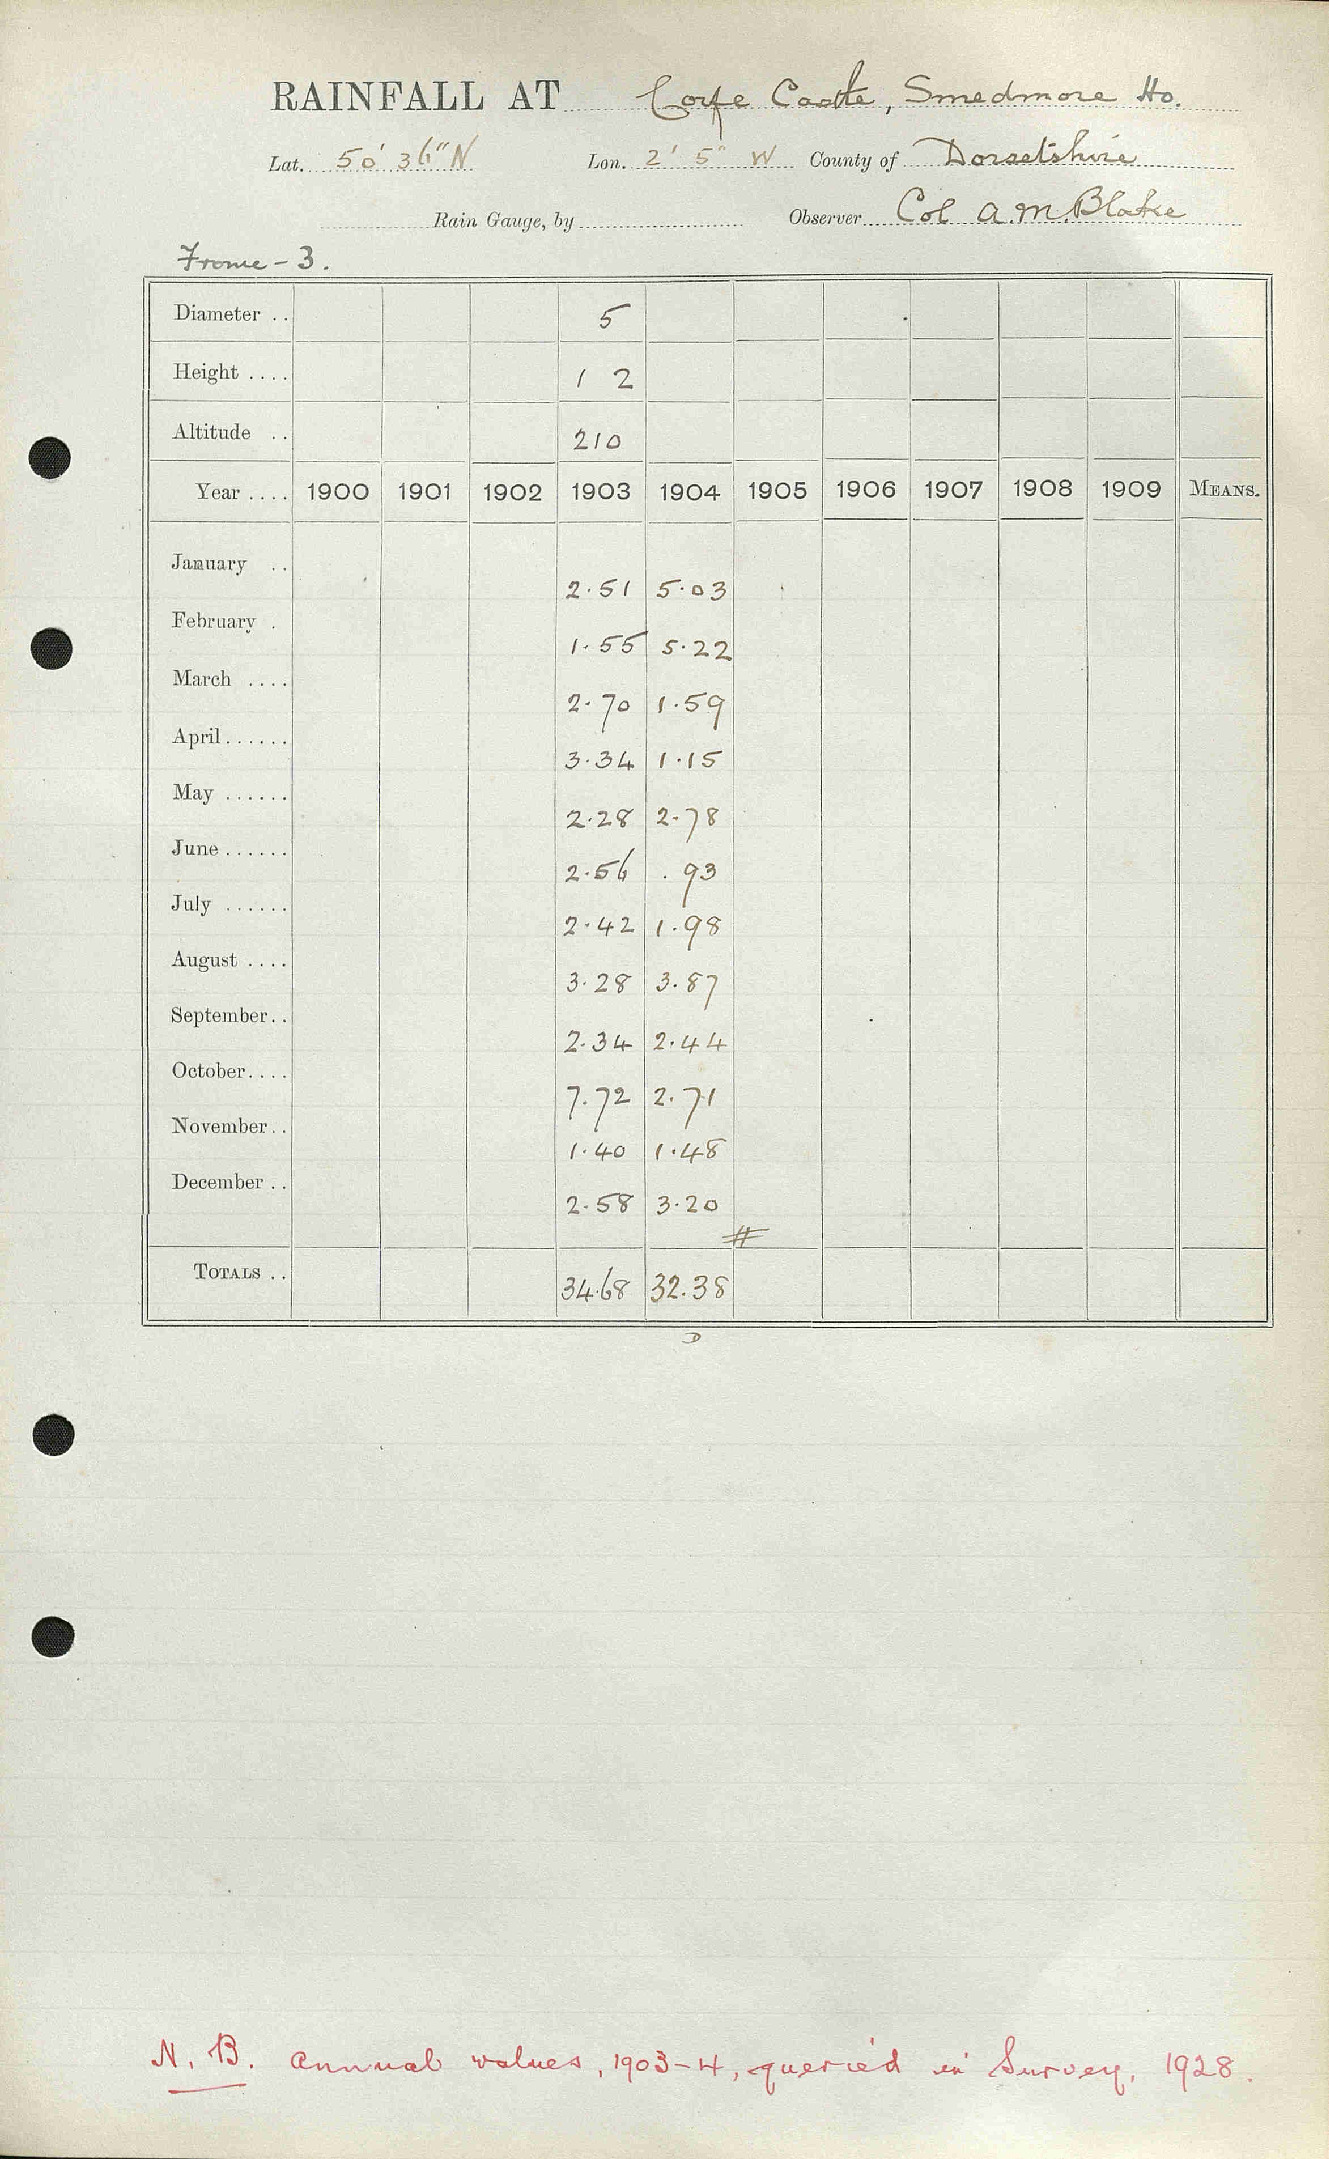 RAINFALL AT Corfe Castle, Smedmore Ho.
Lat. 50' 36" N Lon. 2' 5" W County of Dorsetshire
Rain Gauge, by Observer Col A.M. Blake
Frome - 3.
Diameter .. 5
Height .... 1 2
Altitude .. 210
Year .... 1900 1901 1902 1903 1904 1905 1906 1907 1908 1909 MEANS.
January .. 2.51 5.03
February . 1.55 5.22
March .... 2.70 1.59
April...... 3.34 1.15
May ...... 2.28 2.78
June ...... 2.56 .93
July ...... 2.42 1.98
August .... 3.28 3.87
September.. 2.34 2.44
October.... 7.72 2.71
November.. 1.40 1.48
December .. 2.58 3.20
#
TOTALS .. 34.68 32.38
D
N.B. Annual values, 1903-4, queried in Survey, 1928.